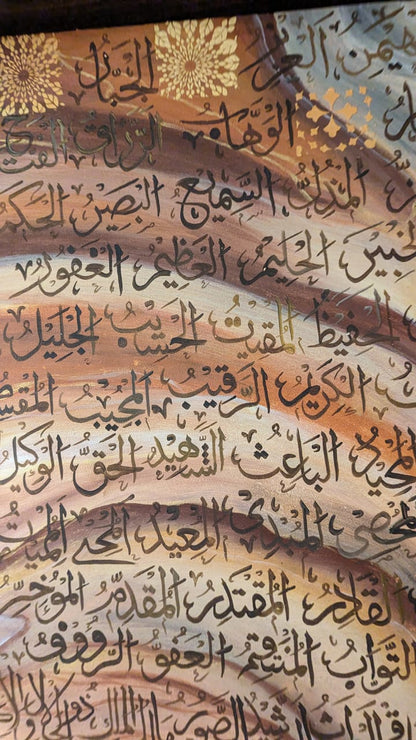 هيمن العزيز الجبار
الوهاب الرزاق الفتح
المذل السميع البصير الحكم
لخبير الحليم العظيم الغفور
الحفيظ المقيت الحسيب الجليل
الكريم الرقيب المجيب المقسط
المجيد الباعث الشهيد الحق الوكيل
لمحصي المبدئ المعيد المحيي المميت
القادر المقتدر المقدم المؤخر
التواب المنتقم العفو الرؤوف
الصبور الملك ذو